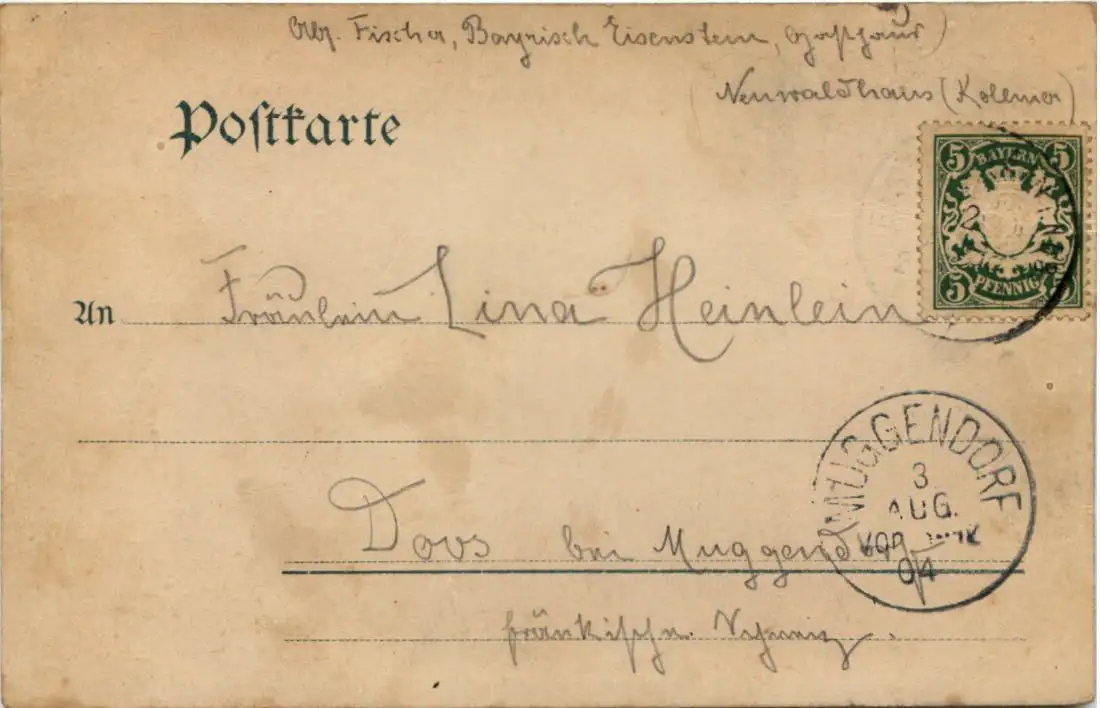 Abs. Fischer, Bayrisch Eisenstein, Gasthaus
Neuwaldhaus (Kollmer)
Postkarte
5 BAYERN 5
5 PFENNIG 5
An Fräulein Lina Heinlein
MUGGENDORF
3
AUG.
VOR
04
Doos bei Muggendorf
fränkische Schweiz.